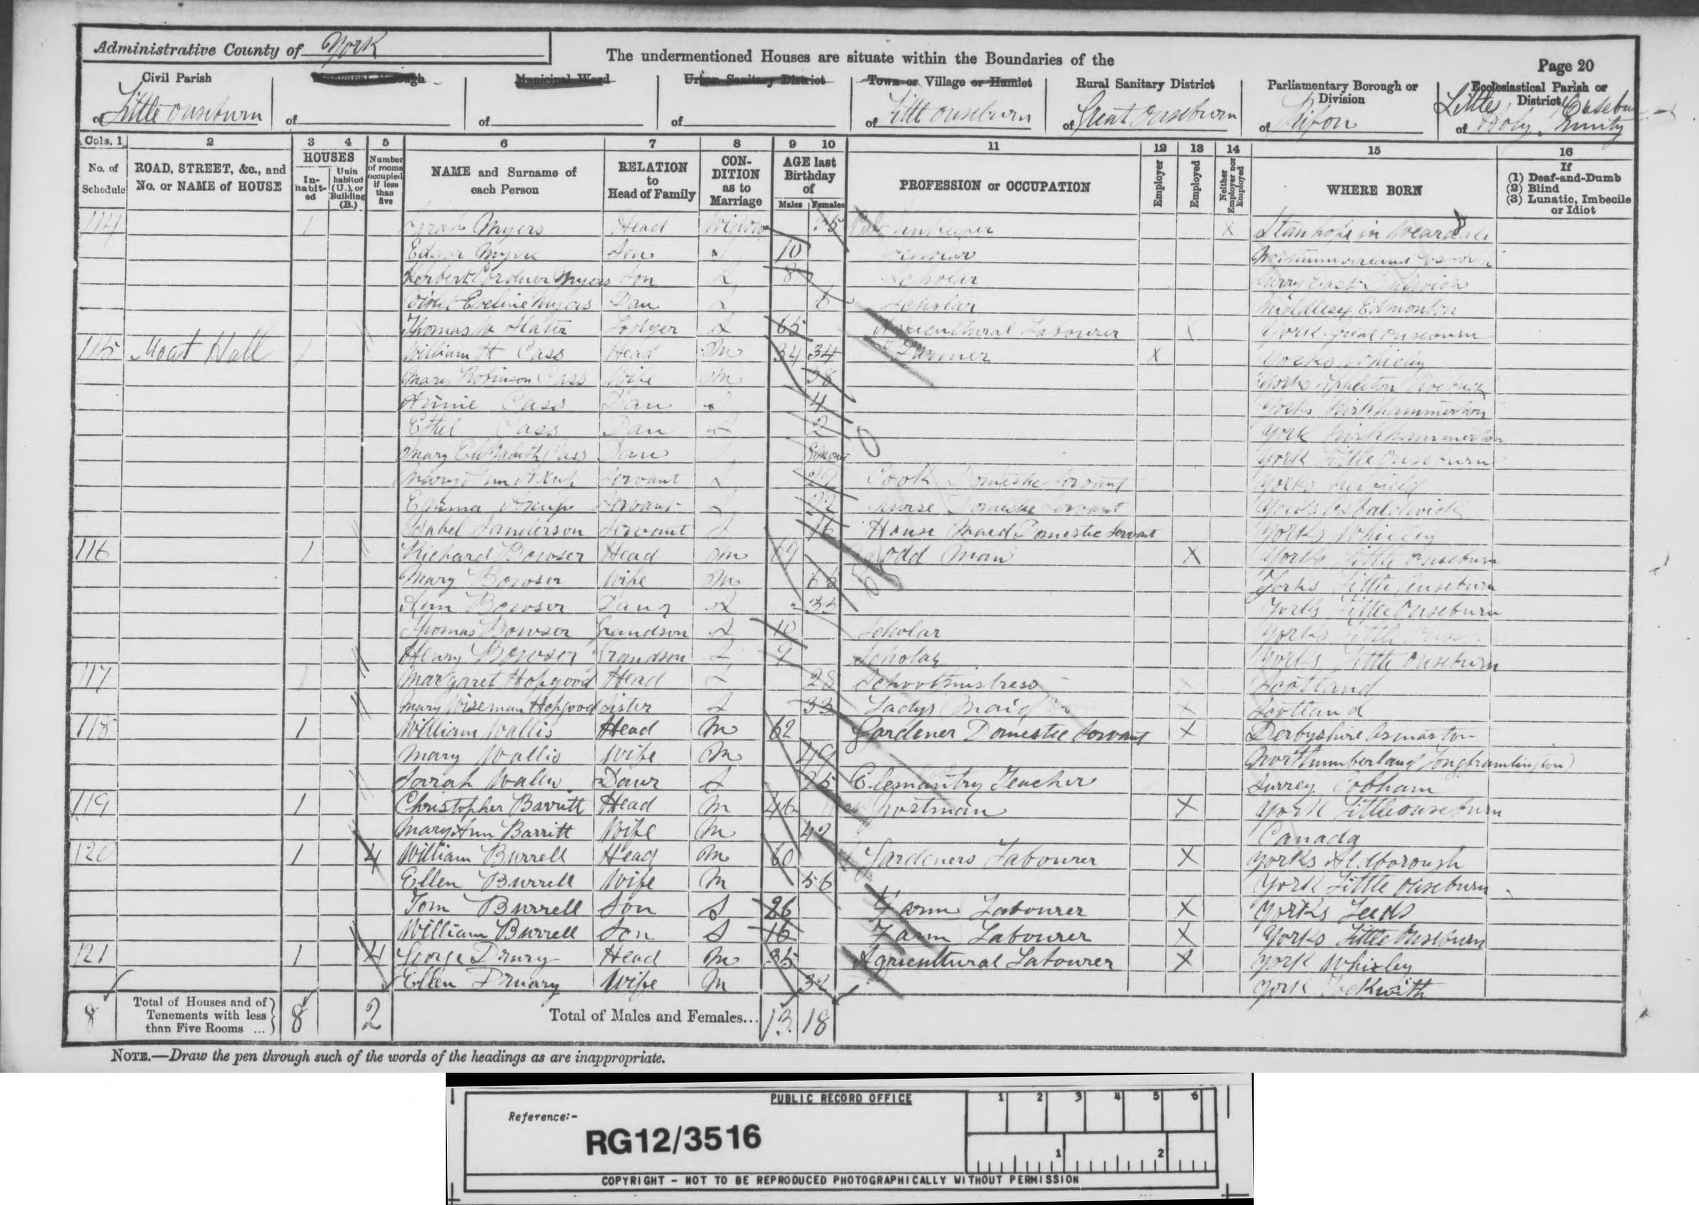 Administrative County of York
The undermentioned Houses are situate within the Boundaries of the
Page 20
Civil Parish
Municipal Ward
Urban Sanitary District
Town or Village or Hamlet
Rural Sanitary District
Parliamentary Borough or Division
Ecclesiastical Parish or District
of Little Ouseburn
of
of
of
of Little Ouseburn
of Great Ouseburn
of Ripon
of Little Ouseburn Holy Trinity
Cols. 1 2 3 4 5 6 7 8 9 10 11 12 13 14 15 16
No. of Schedule
ROAD, STREET, &c., and No. or NAME of HOUSE
HOUSES
Inhabited
Uninhabited (U.), or Building (B.)
Number of rooms occupied if less than five
NAME and Surname of each Person
RELATION to Head of Family
CONDITION as to Marriage
AGE last Birthday of
Males Females
PROFESSION or OCCUPATION
Employer
Employed
Neither Employer nor Employed
WHERE BORN
If
(1) Deaf-and-Dumb
(2) Blind
(3) Lunatic, Imbecile or Idiot
114 1 Sarah Myers Head Widow X Stanhope in Weardale
Edgar Myers Son 10 Scholar
Herbert Myers Son 8 Scholar
Eveline Myers Dau 6 Scholar Middlesex Edmonton
Thomas Slater Lodger S 65 Agricultural Labourer X York Great Ouseburn
115 Moat Hall 1 William H Cass Head M 34 34 Farmer X Yorks Whixley
Mary Robinson Cass Wife M 38 Yorks
Annie Cass Dau S 4 Yorks Kirkhammerton
Ethel Cass Dau S 2 York Kirkhammerton
Mary Elizabeth Cass Dau York Little Ouseburn
Servant S Cook Domestic Servant Yorks
Emma Servant S 22 Nurse Domestic Servant Yorks
Isabel Sanderson Servant S 16 House Maid Domestic Servant Yorks Whixley
116 1 Richard Bowser Head M Odd Man X Yorks Little Ouseburn
Mary Bowser Wife M Yorks Little Ouseburn
Ann Bowser Daur S Yorks Little Ouseburn
Thomas Bowser Grandson S 10 Scholar Yorks Little Ouseburn
Henry Bowser Grandson S 7 Scholar Yorks Little Ouseburn
117 1 Margaret Hopgood Head S 28 Schoolmistress X Scotland
Mary Wiseman Hopgood Sister S 33 Ladys Maid X Scotland
118 1 William Wallis Head M 62 Gardener Domestic Servant X Derbyshire Osmaston
Mary Wallis Wife M 49 Northumberland Longframlington
Sarah Wallis Daur S 25 Elementry Teacher Surrey Cobham
119 1 Christopher Barritt Head M 46 Postman X York Little Ouseburn
Mary Ann Barritt Wife M 42 Canada
120 1 4 William Burrell Head M 60 Gardeners Labourer X Yorks Aldborough
Ellen Burrell Wife M 56 York Little Ouseburn
Tom Burrell Son S 26 Farm Labourer X Yorks Leeds
William Burrell Son S 16 Farm Labourer X Yorks Little Ouseburn
121 1 4 George Drury Head M 35 Agricultural Labourer X York Whixley
Ellen Druary Wife M York Tockwith
8 Total of Houses and of Tenements with less than Five Rooms ... 8 2 Total of Males and Females... 13 18
NOTE.—Draw the pen through such of the words of the headings as are inappropriate.
PUBLIC RECORD OFFICE
1 2 3 4 5 6
Reference:-
RG12/3516
1 2
COPYRIGHT - NOT TO BE REPRODUCED PHOTOGRAPHICALLY WITHOUT PERMISSION